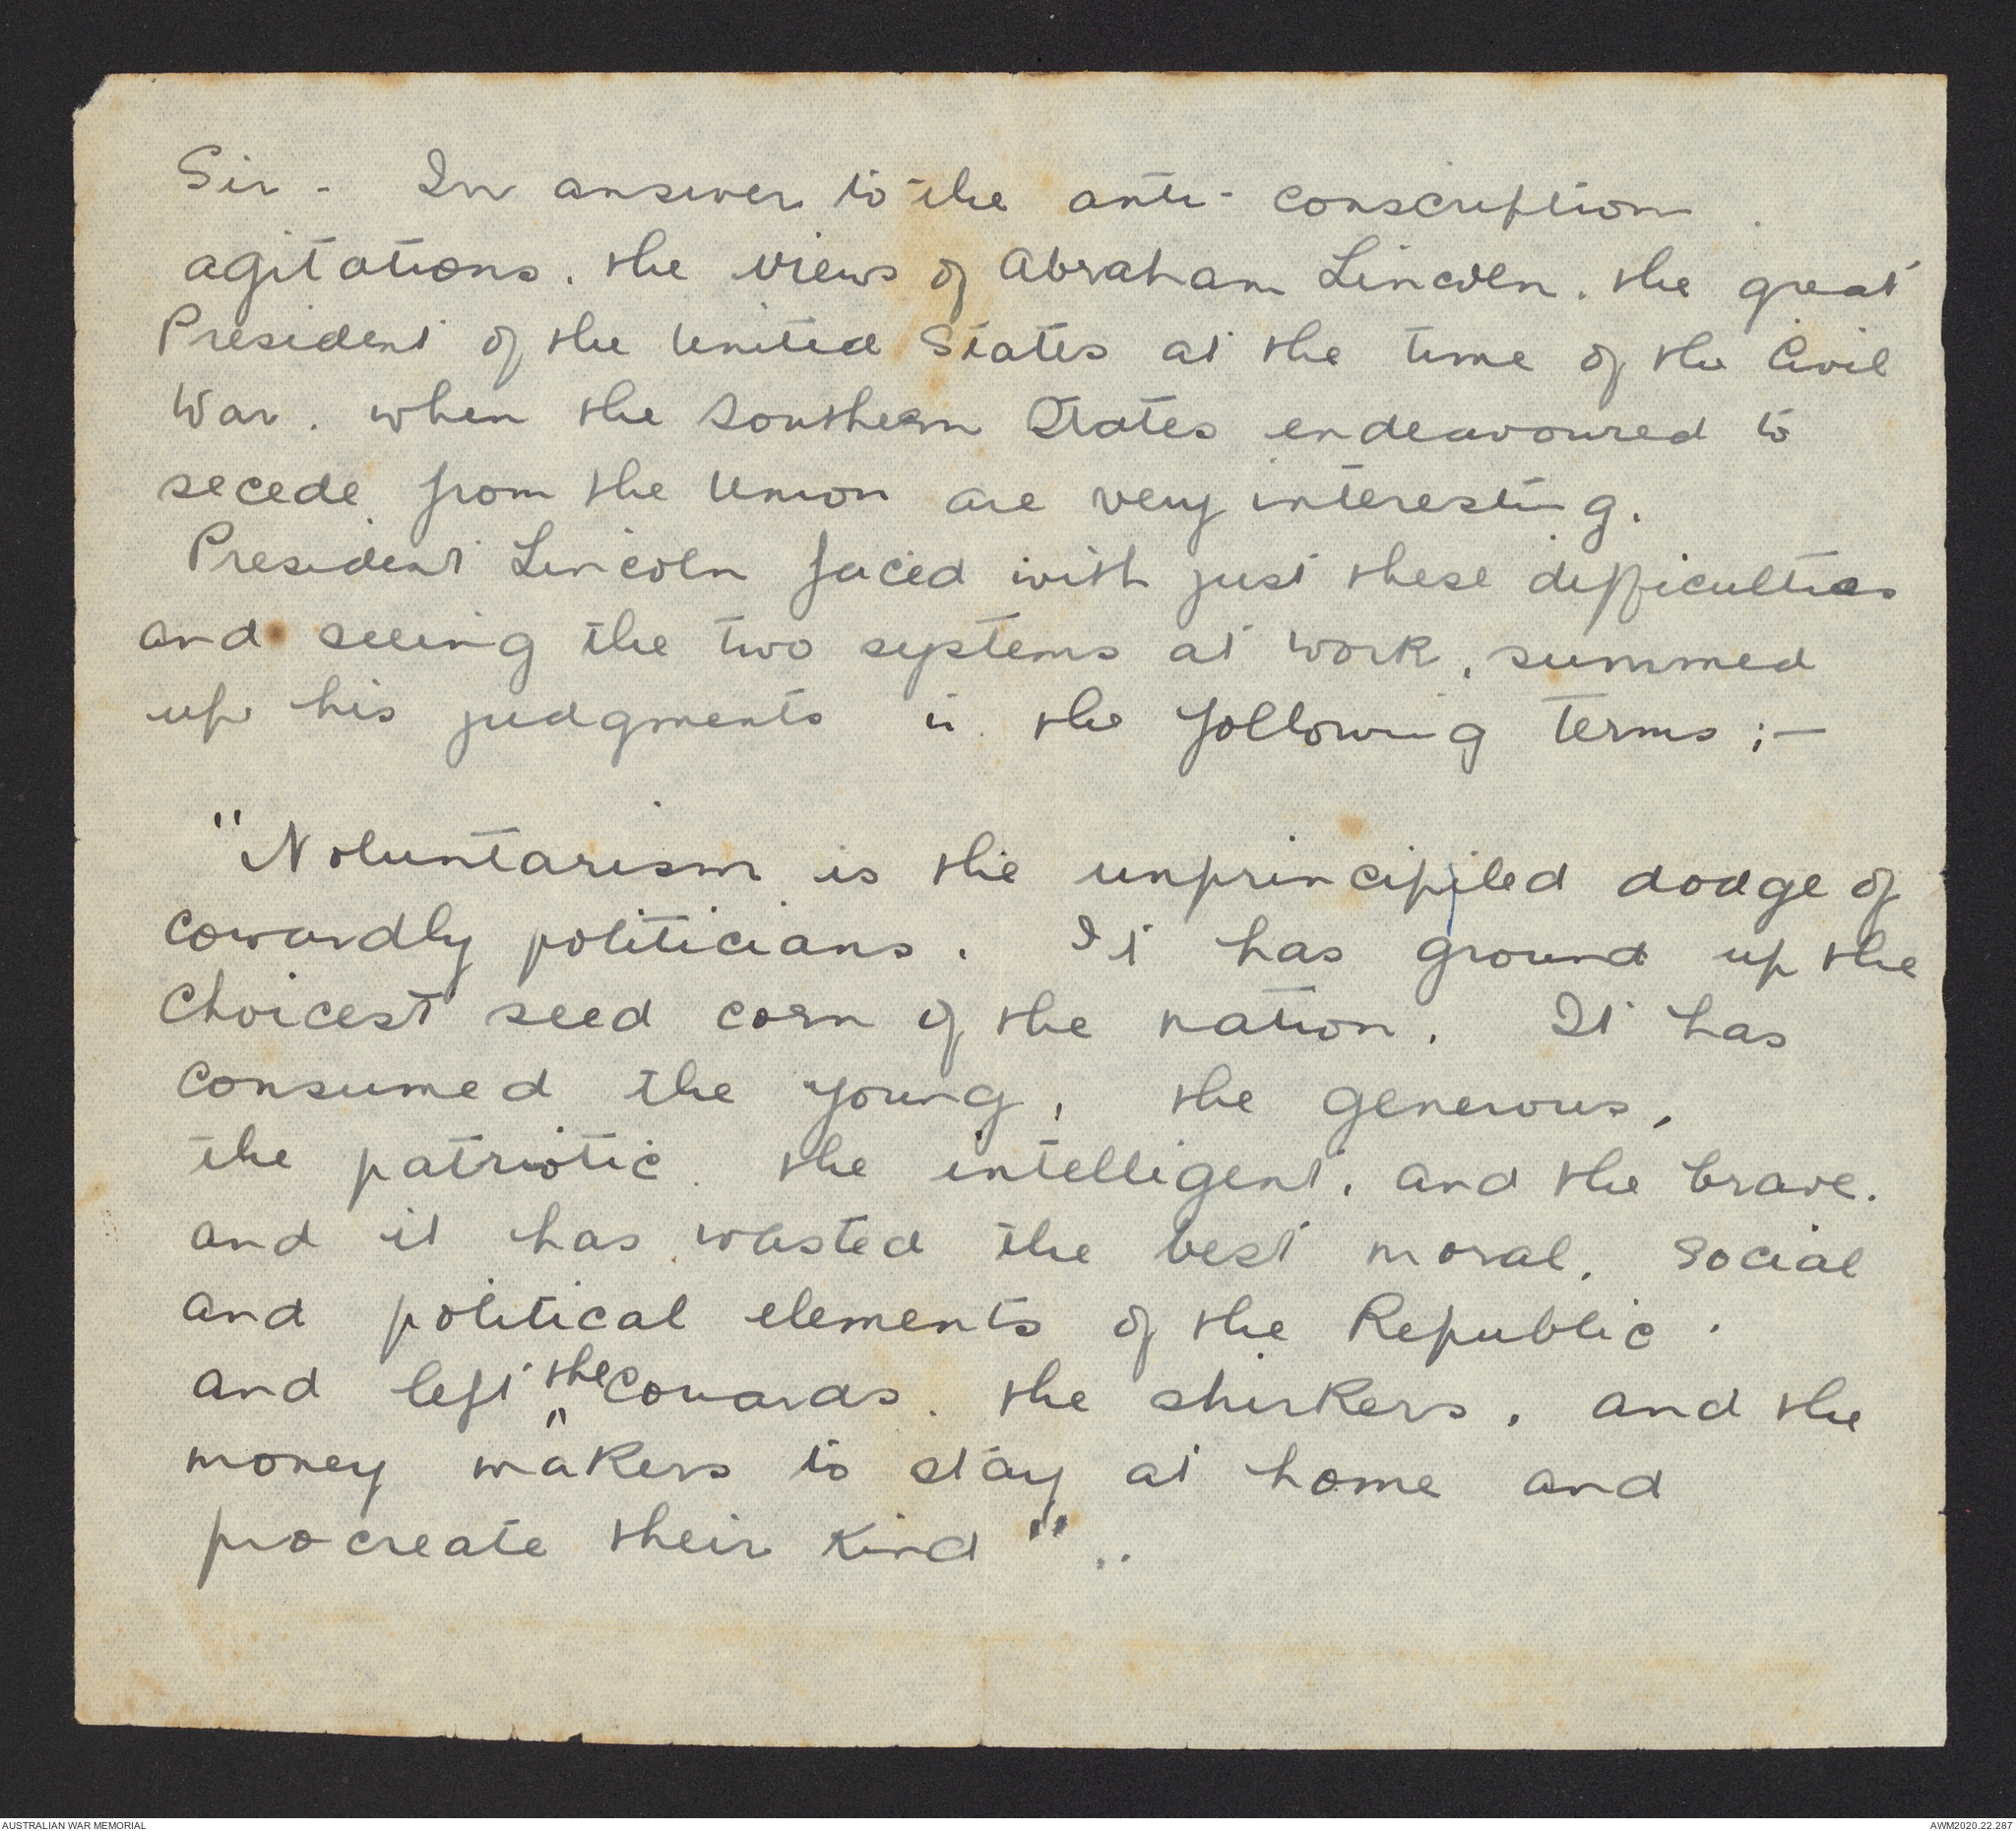 Sir - In answer to the anti-conscription
agitations. the views of Abraham Lincoln. the great
President of the United States at the time of the Civil
War. when the Southern States endeavoured to
secede from the Union are very interesting.
President Lincoln faced with just these difficulties
and seeing the two systems at work, summed
up his judgments in the following terms :-
"Voluntarism is the unprincipiled dodge of
cowardly politicians. It has ground up the
choicest seed corn of the nation. It has
consumed the young, the generous,
the patriotic. the intelligent, and the brave.
and it has wasted the best moral, social
and political elements of the Republic.
and left the cowards. the shirkers, and the
money makers to stay at home and
procreate their kind"..
AUSTRALIAN WAR MEMORIAL
AWM2020.22.287